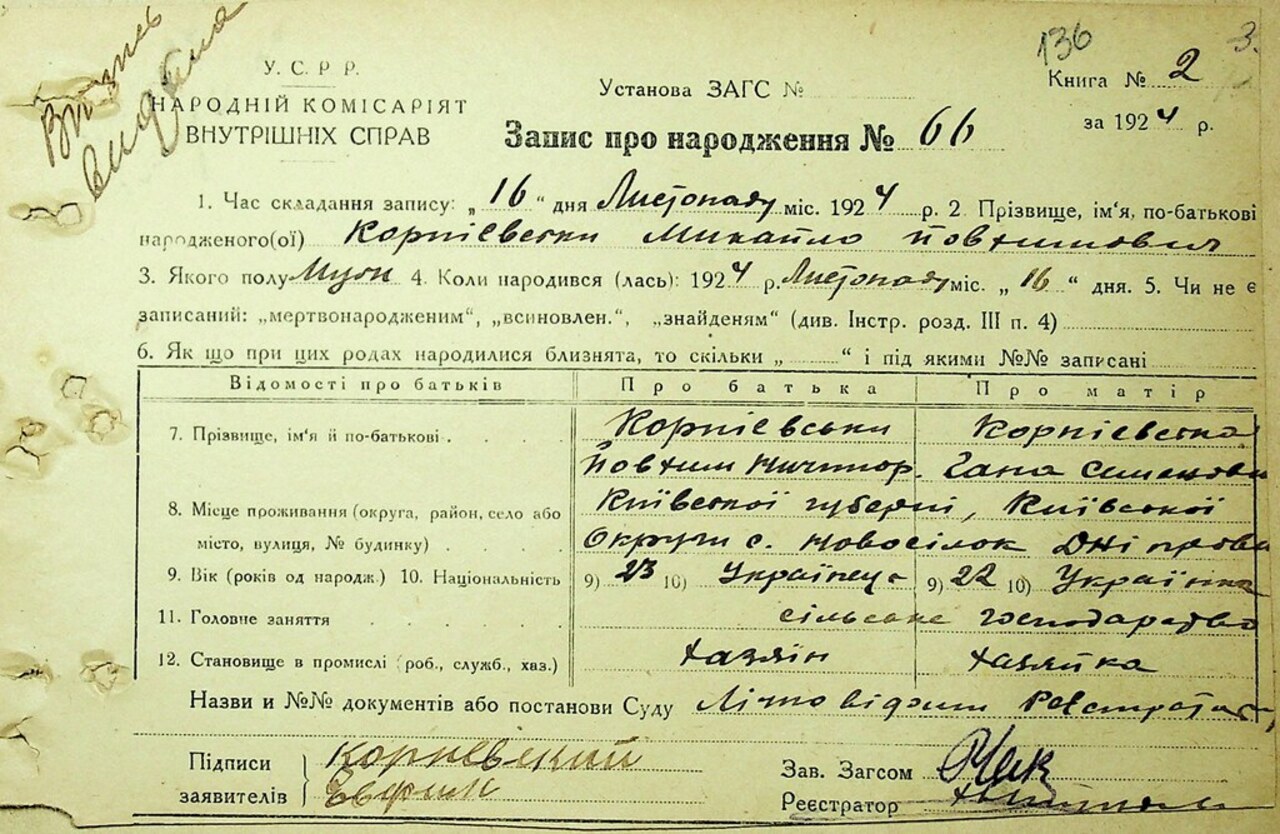 136
3.
Витяг
видана
У. С. Р. Р.
НАРОДНІЙ КОМІСАРІЯТ
ВНУТРІШНІХ СПРАВ
Установа ЗАГС №
Книга № 2
за 1924 р.
Запис про народження № 66
1. Час складання запису: „16“ дня Листопаду міс. 1924 р. 2. Прізвище, ім‘я, по-батькові
народженого(ої) Корнієвськи Михайло Йовхимович
3. Якого полу Мужи 4. Коли народився (лась): 1924 р. Листопаду міс. „16“ дня. 5. Чи не є
записаний: „мертвонародженим“, „всиновлен.“, „знайденям“ (див. Інстр. розд. III п. 4)
6. Як що при цих родах народилися близнята, то скільки „ “ і під якими №№ записані
Відомості про батьків Про батька Про матір
7. Прізвище, ім‘я й по-батькові Корнієвськи Корнієвська
Йовхим Ничипор. Гана Семеновн
8. Місце проживання (округа, район, село або Київської губерні, Київської
місто, вулиця, № будинку) Округи с. Новосілок Дніпрови
9. Вік (років од народж.) 10. Національність 9) 23 10) Українець 9) 22 10) Українка
11. Головне заняття сільське господарство
12. Становище в промислі (роб., служб., хаз.) хазяін хазяйка
Назви и №№ документів або постанови Суду Лічно
Підписи Корневский
заявителів Евфим
Зав. Загсом
Реєстратор